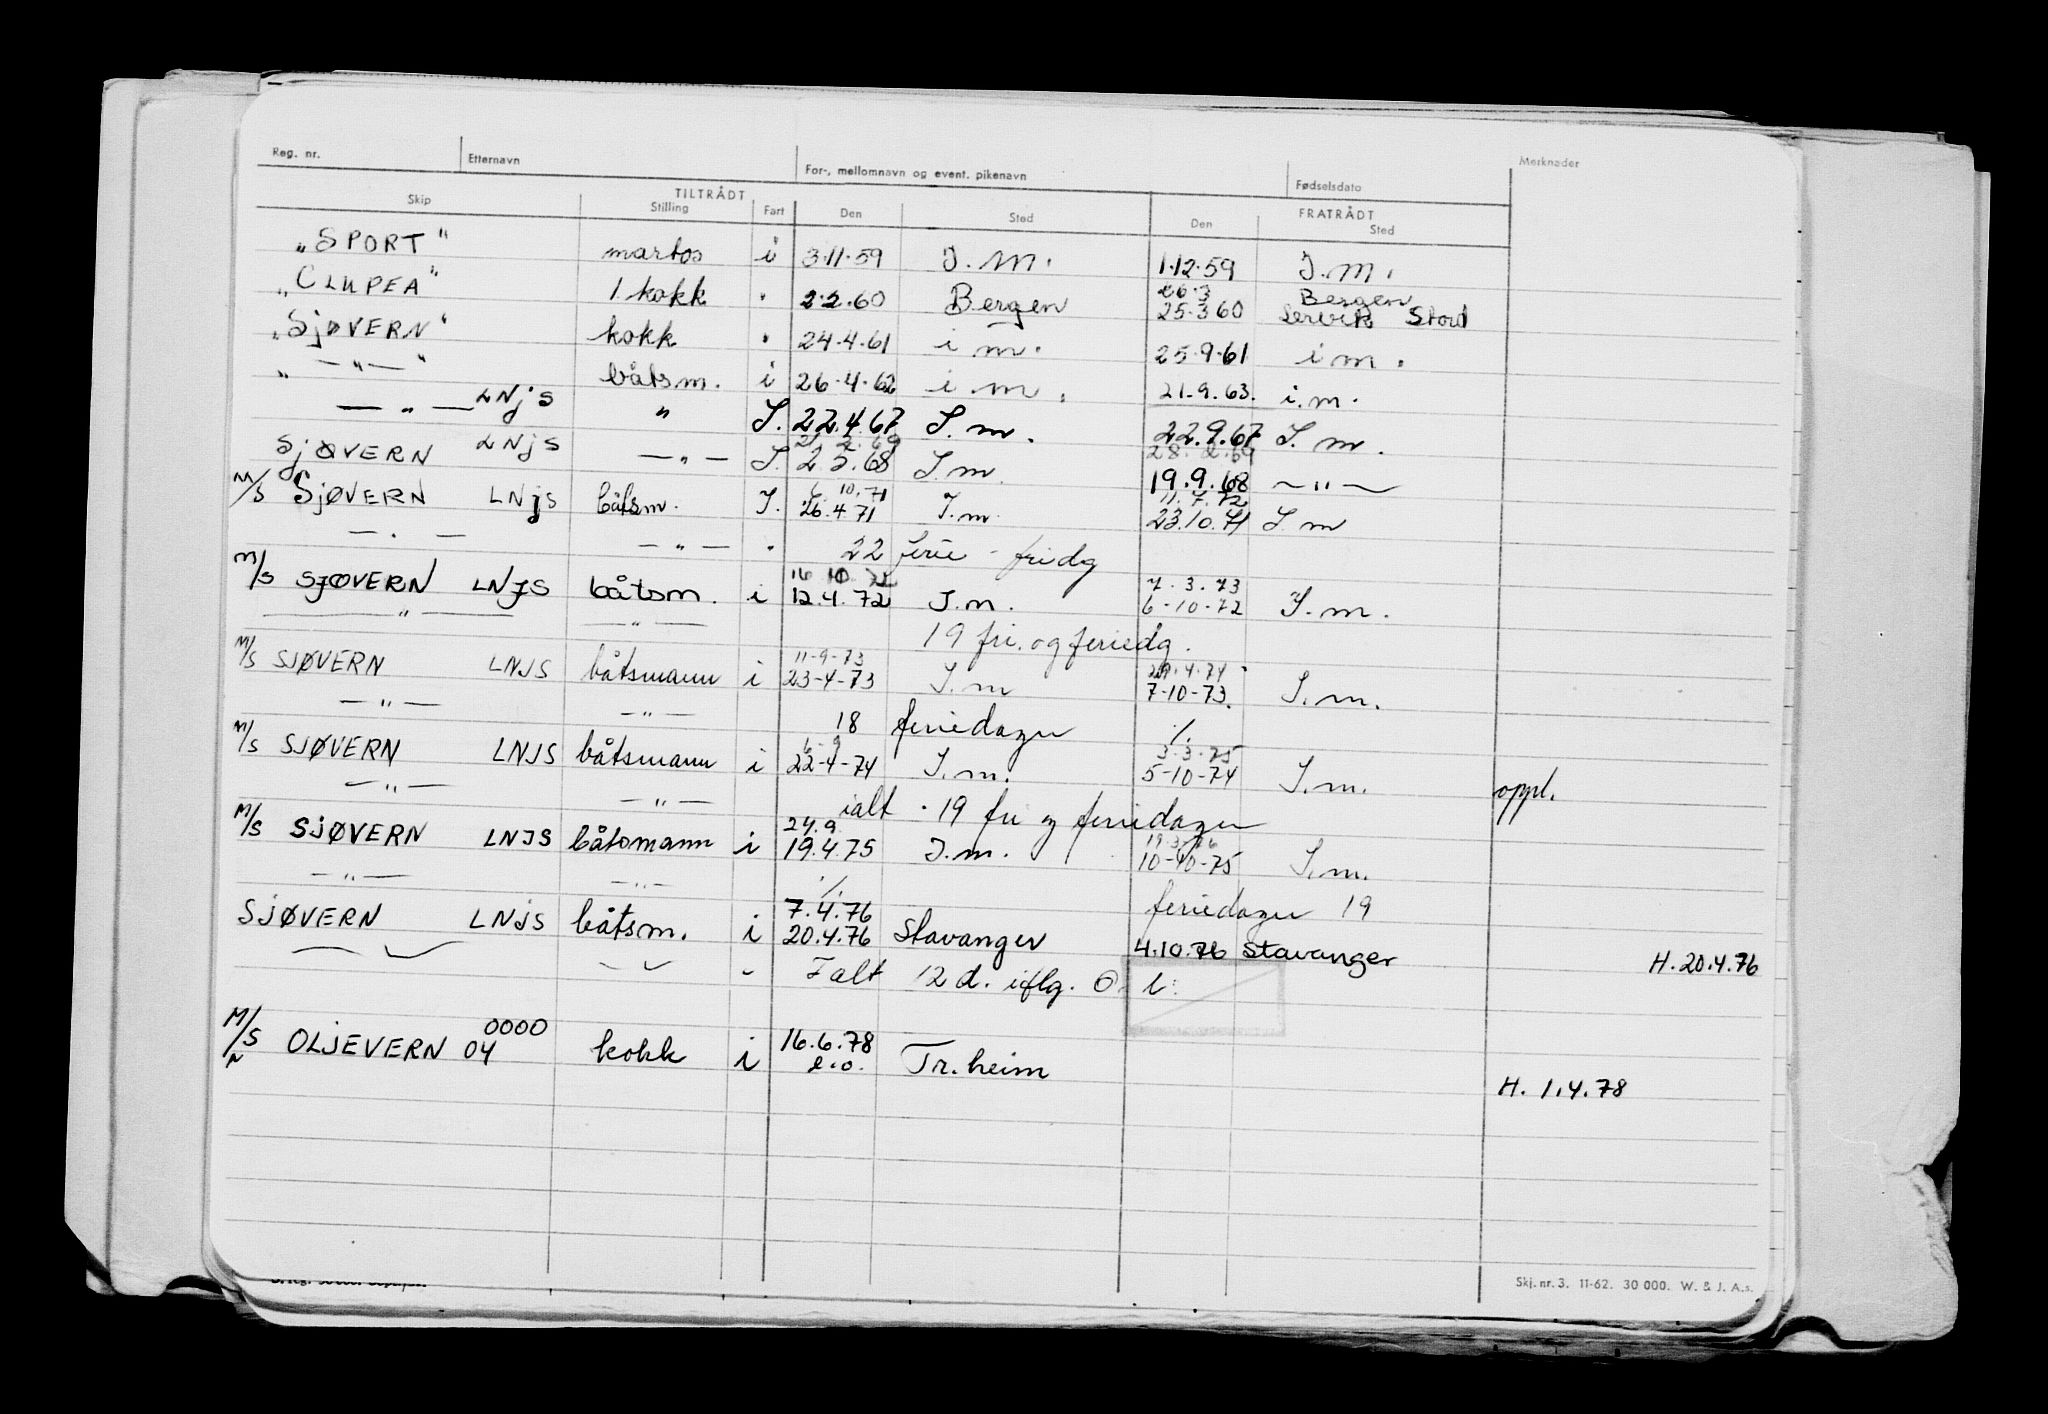 Reg. nr. Etternavn For-, mellomnavn og event. pikenavn Fødselsdato Merknader
TILTRÅDT FRATRÅDT
Skip Stilling Fart Den Sted Den Sted
"SPORT" martos i 3.11.59 I.M. 1.12.59 I.M.
26.3 Bergen
"CLUPEA" 1.kokk " 2.2.60 Bergen 25.3 60 Lervik Stord
"SJØVERN" kokk " 24-4-61 i m. 25.9.61 i m.
" — " — " båtsm. i 26-4-62 i m. 21-9.63. i.m.
— " — LNjS " I. 22.4.67 I.m. 22.9.67 I.m.
21.2.69 28.2.69
SjØVERN LNjS — " — I. 2 5.68 I.m. 19.9.68 — " —
6.10.71 11.7.72
M/S SjØVERN LNjS båtsm. I. 26.4.71 I.m. 23.10.71 I.m
— " — — " — " 22 ferie - fridg
16 10 72 7.3.73
M/S SJØVERN LNJS båtsm. i 12.4.72 I.m. 6-10-72 I.m.
— " — — " — 19 fri. og feriedg.
11-9-73 29.4.74
M/S SJØVERN LNJS båtsmann i 23-4-73 I.m 7-10-73. I.m.
— " — — " — 18 feriedager ./.
6-9 3.3.75
M/S SJØVERN LNJS båtsmann i 22-4-74 I.m. 5-10-74 I.m. oppl.
— " — — " — ialt - 19 fri og feriedager
24.9 19.3.76
M/S SJØVERN LNJS båtsmann i 19.4.75 I.m. 10-10-75 I.m.
— " — — " — ./. feriedager 19
7.4.76
SJØVERN LNJS båtsm. i 20.4.76 Stavanger 4.10.76 Stavanger H.20.4.76
Ialt 12 d. iflg. O. L.
0000
M/S OLJEVERN 04 kokk i 16.6.78 Tr.heim
e.o.
H. 1.4.78
Skj. nr. 3. 11-62. 30 000. W. & J. A.s.